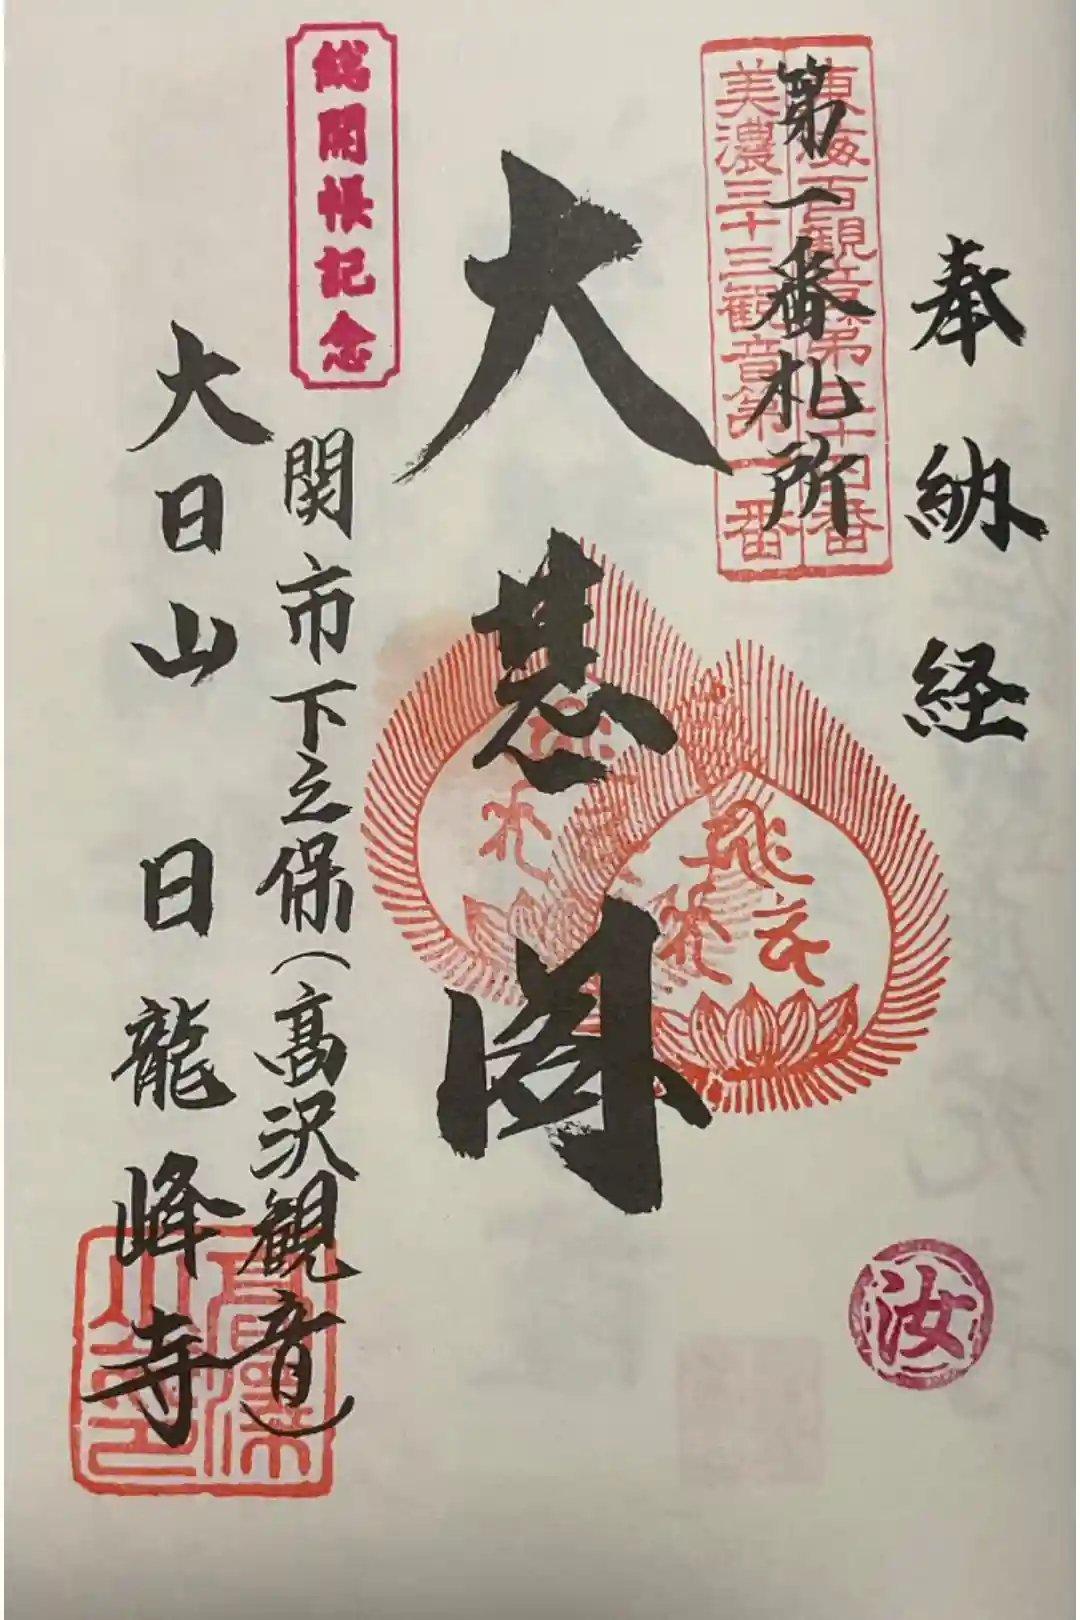 奉納経
汝
東海百観音第三十四番
美濃三十三観音第一番
第一番札所
大悲閣
総開帳記念
関市下之保(高沢観音)
大日山 日龍峰寺